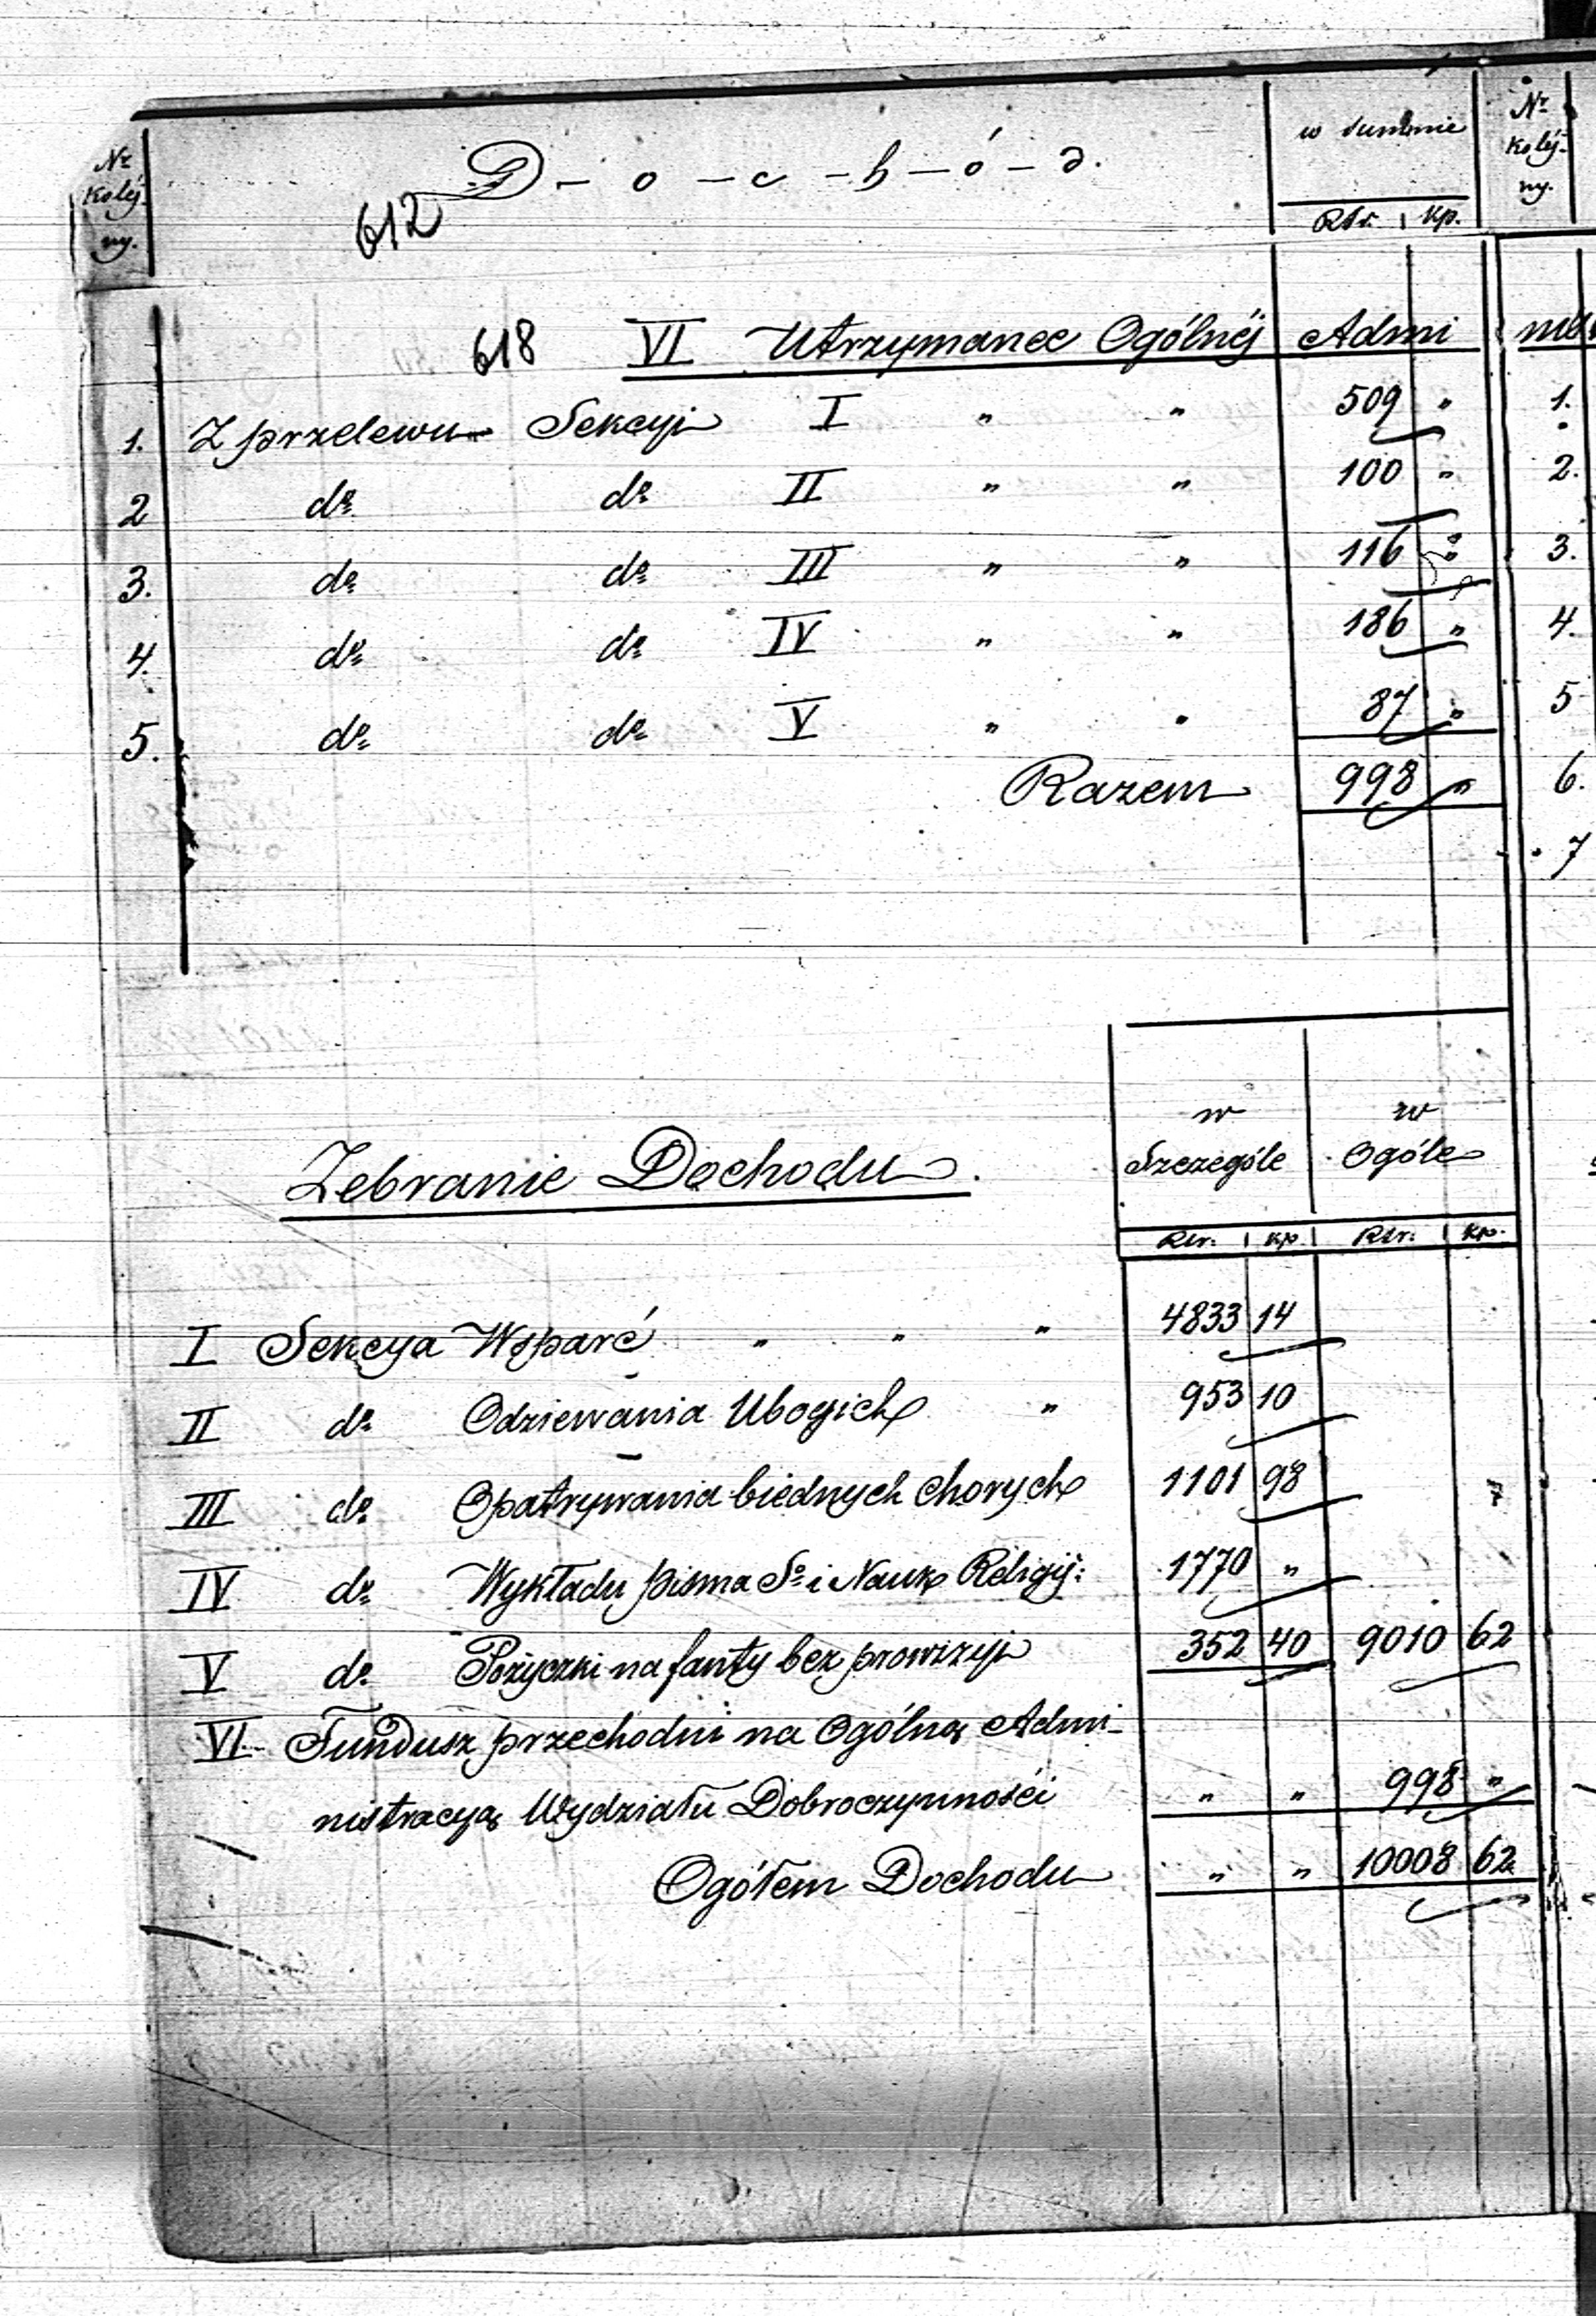 Nr Kolej- ny. D - o - c - h - ó - d. w Summie Nr Kolej- ny.
612 Rsr. Kp.
618 VI Utrzymanee Ogólnéj Admi
1. Z przelewu Sekcyi I " " 509 " 1.
2 do do II " " 100 " 2.
3. do do III " " 116 " 3.
4. do do IV " " 186 " 4.
5. do do V " " 87 " 5
Razem 998 " 6.
7
w Szczególe w Ogóle
Zebranie Dochodu.
Rsr. Kp. Rsr. Kp.
I Sekcya Wsparć " " " 4833 14
II do Odziewania Ubogich " 953 10
III do Opatrywania biednych chorych 1101 98
IV do Wykładu pisma So i Nauk Religij: 1770 "
V do Pożyczki na fanty bez prowizyi 352 40 9010 62
VI Fundusz przechodni na Ogólną Admi-
nistracyą Wydziału Dobroczynności " " 998 "
Ogółem Dochodu " " 10008 62